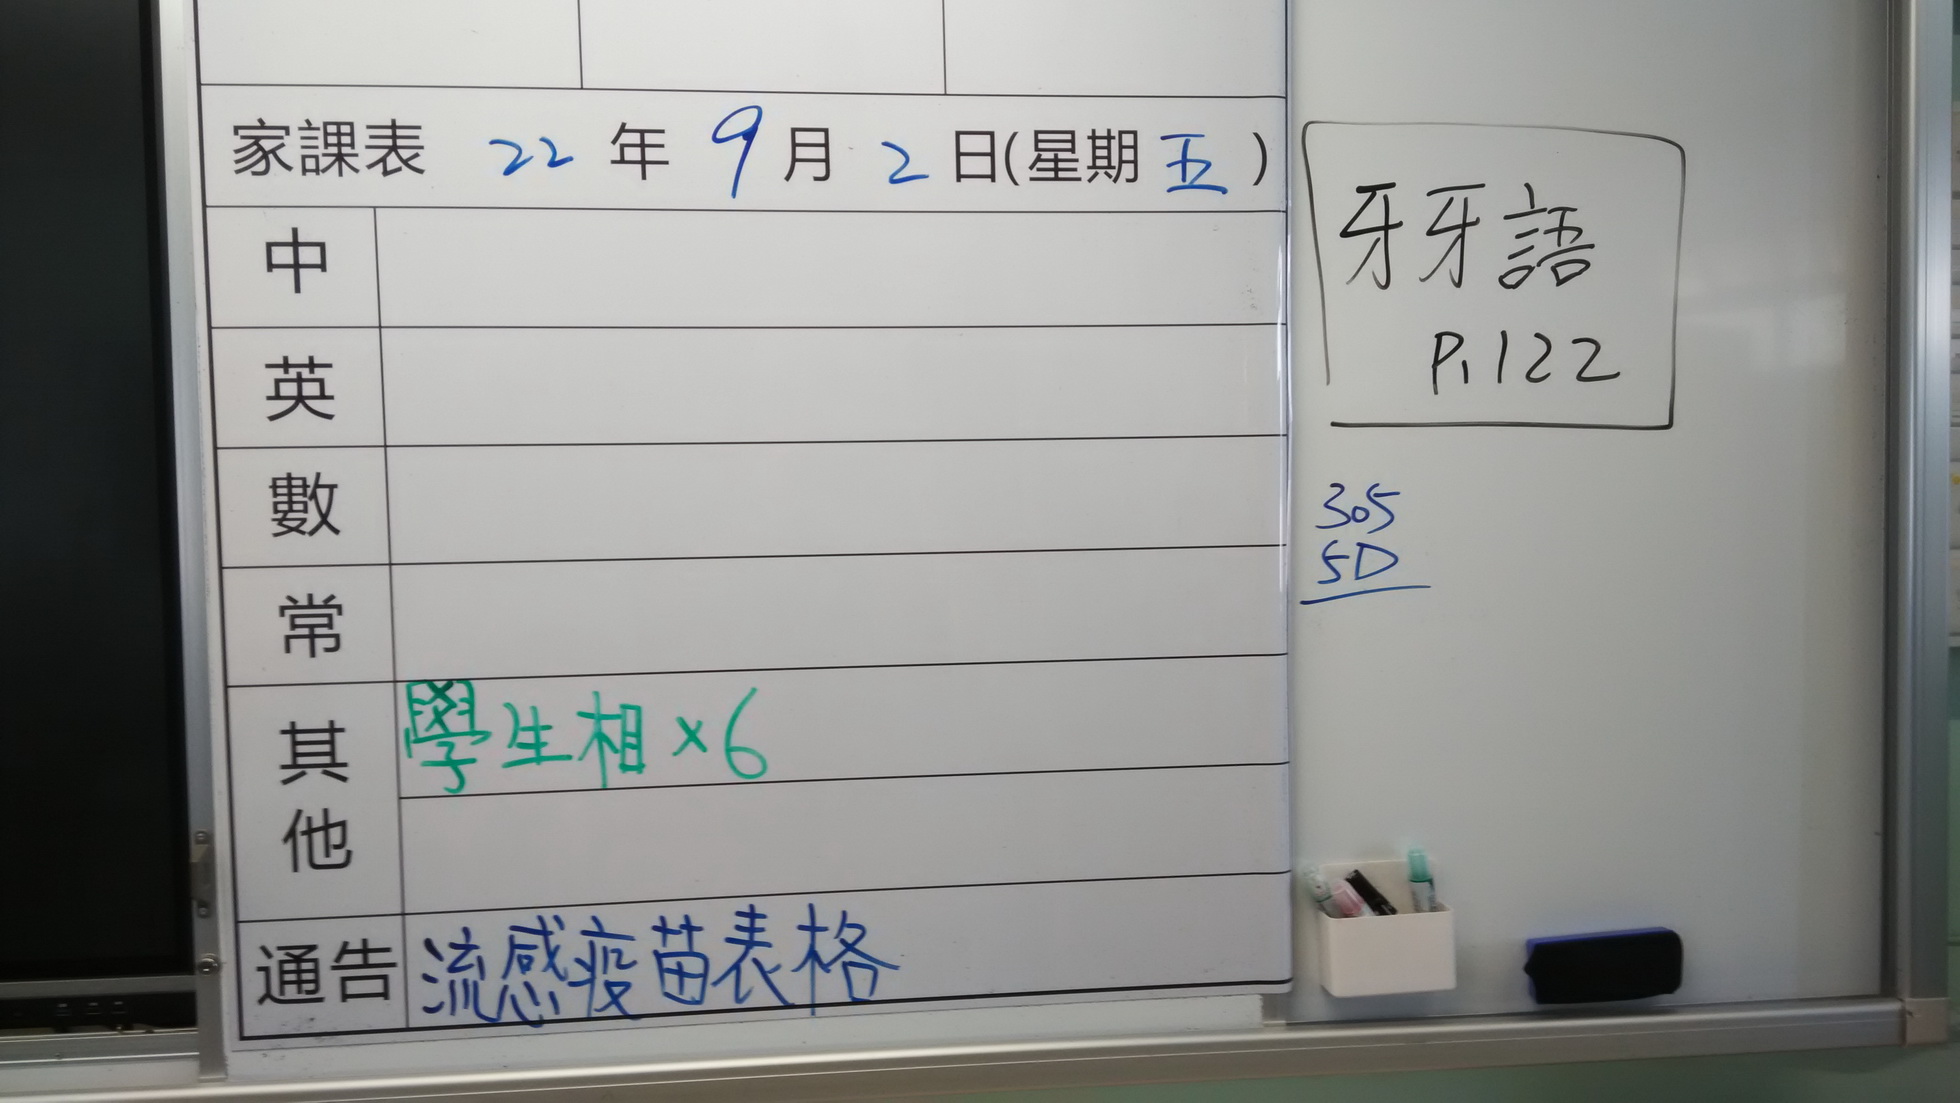 家課表 22 年 9 月 2 日(星期 五)
中
英
數
常
其他
學生相 x 6
通告 流感疫苗表格
牙牙語
P.122
305
5D